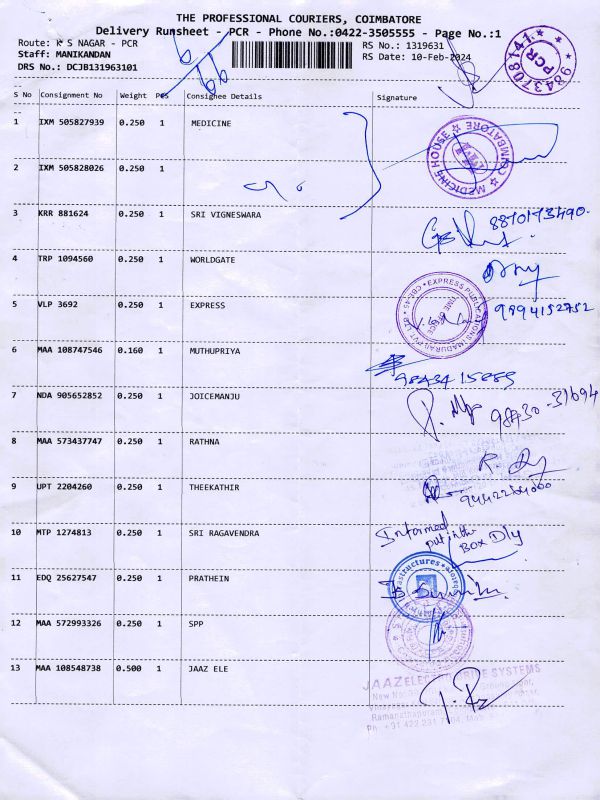 THE PROFESSIONAL COURIERS, COIMBATORE
Delivery Runsheet - PCR - Phone No.:0422-3505555 - Page No.:1
Route: K S NAGAR - PCR RS No.: 1319631
Staff: MANIKANDAN RS Date: 10-Feb-2024
DRS No.: DCJB131963101
9843708141
PCR
S No Consignment No Weight Pcs Consignee Details Signature
1 IXM 505827939 0.250 1 MEDICINE
MEDICINE HOUSE ☆ COIMBATORE ☆
2 IXM 505828026 0.250 1
3 KRR 881624 0.250 1 SRI VIGNESWARA
4 TRP 1094560 0.250 1 WORLDGATE
5 VLP 3692 0.250 1 EXPRESS
9994152752
6 MAA 108747546 0.160 1 MUTHUPRIYA
9843415885
7 NDA 905652852 0.250 1 JOICEMANJU
98430-31694
8 MAA 573437747 0.250 1 RATHNA
9 UPT 2204260 0.250 1 THEEKATHIR
10 MTP 1274813 0.250 1 SRI RAGAVENDRA
Informed
put in the
Box Dly
11 EDQ 25627547 0.250 1 PRATHEIN
12 MAA 572993326 0.250 1 SPP
13 MAA 108548738 0.500 1 JAAZ ELE